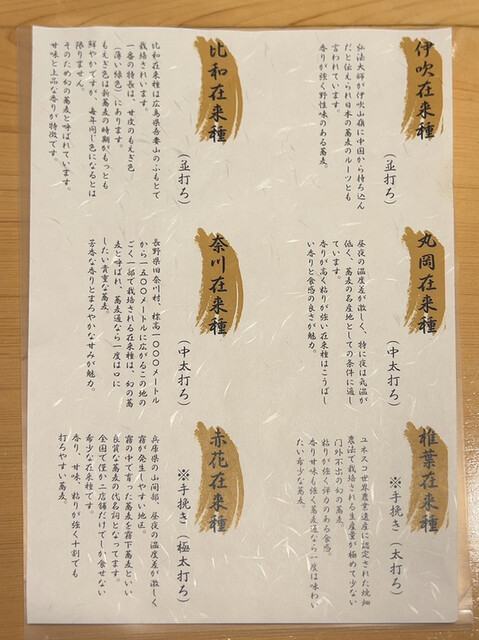 伊吹在来種
(並打ろ)
弘法大師が伊吹山嶺に中国から持ち込ん
だと伝えられ日本の蕎麦のルーツとも
言われています。
香りが強く野性味のある蕎麦。
比和在来種
(並打ろ)
比和在来種は広島県吾妻山のふもとで
栽培されています。
一番の特長は、甘皮のもえぎ色
(薄い緑色)にあります。
もえぎ色は新蕎麦の時期がもっとも
鮮やかですが、毎年同じ色になるとは
限りません。
そのため幻の蕎麦と呼ばれています。
甘味と上品な香りが特徴です。
丸岡在来種
(中太打ろ)
昼夜の温度差が激しく、特に夜は気温が
低く、蕎麦の名産地としての条件に適し
ています。
香りが高く粘りが強い在来種はこうばし
い香りと食感の良さが魅力。
奈川在来種
(中太打ろ)
長野県旧奈川村、標高一〇〇〇メートル
から一五〇〇メートルに広がるこの地の
ごく一部で栽培される在来種は、幻の蕎
麦と呼ばれ、蕎麦通なら一度は口に
したい貴重な蕎麦。
芳香な香りとまろやかな甘みが魅力。
椎葉在来種
※手挽き(太打ろ)
ユネスコ世界農業遺産に認定された焼畑
農法で栽培される生産量が極めて少ない
門外不出の幻の蕎麦。
粘りが強く弾力のある食感。
香り甘味も強く蕎麦通なら一度は味わい
たい希少な蕎麦。
赤花在来種
※手挽き(極太打ろ)
兵庫県の山間部、昼夜の温度差が激しく
霧が発生しやすい地区。
霧の中で育った蕎麦を霧下蕎麦といい
良質な蕎麦の代名詞となってます。
全国で僅か二店舗だけでしか食せない
希少な在来種です。
香り、甘味、粘りが強く十割でも
打ちやすい蕎麦。